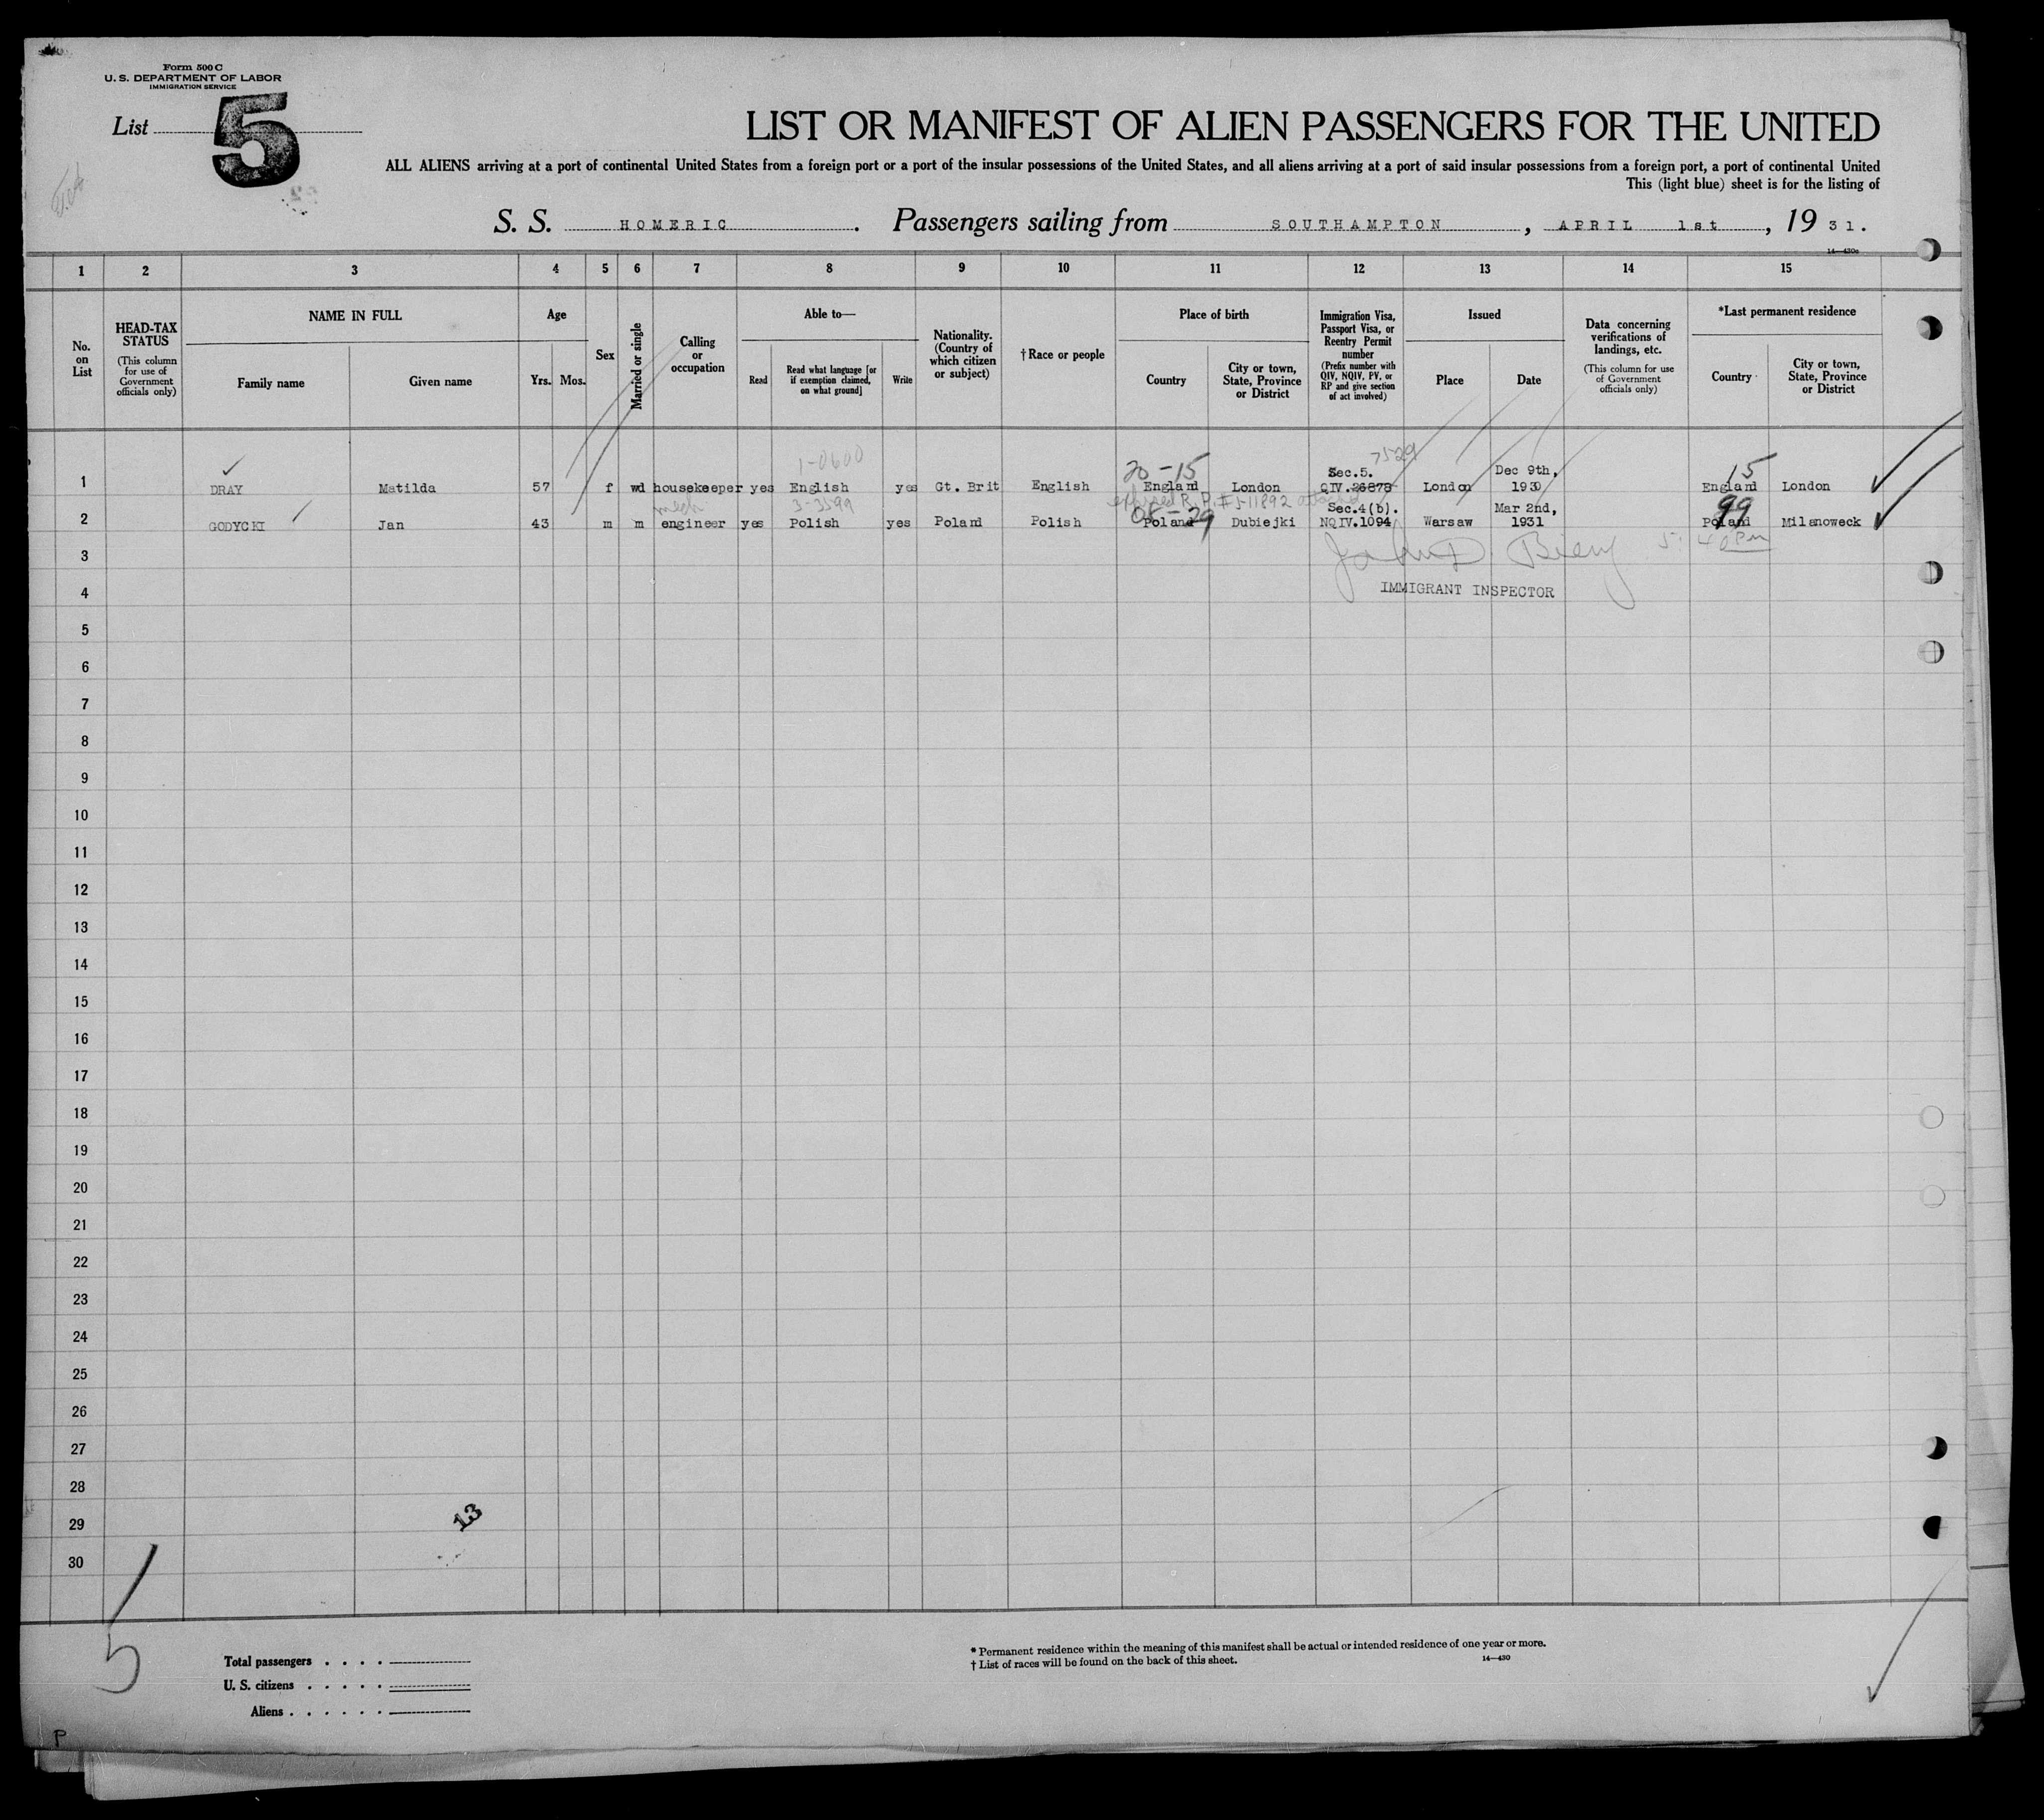 Form 500 C
U. S. DEPARTMENT OF LABOR
IMMIGRATION SERVICE
List 5
LIST OR MANIFEST OF ALIEN PASSENGERS FOR THE UNITED
ALL ALIENS arriving at a port of continental United States from a foreign port or a port of the insular possessions of the United States, and all aliens arriving at a port of said insular possessions from a foreign port, a port of continental United
This (light blue) sheet is for the listing of
S. S. HOMERIC. Passengers sailing from SOUTHAMPTON, APRIL 1st, 19 31.
14—430c
1 2 3 4 5 6 7 8 9 10 11 12 13 14 15
No. on List
HEAD-TAX STATUS
(This column for use of Government officials only)
NAME IN FULL
Family name
Given name
Age
Yrs.
Mos.
Sex
Married or single
Calling or occupation
Able to—
Read
Read what language [or if exemption claimed, on what ground]
Write
Nationality. (Country of which citizen or subject)
† Race or people
Place of birth
Country
City or town, State, Province or District
Immigration Visa, Passport Visa, or Reentry Permit number
(Prefix number with QIV, NQIV, PV, or RP and give section of act involved)
Issued
Place
Date
Data concerning verifications of landings, etc.
(This column for use of Government officials only)
*Last permanent residence
Country
City or town, State, Province or District
1-0600 20-15 Sec.5. 7529 Dec 9th, 15
1 DRAY Matilda 57 f wd housekeeper yes English yes Gt. Brit English England London QIV.26878 London 1930 England London
mech 3-3599 expired R.P. #511892 attached
08-29 Sec.4(b). Mar 2nd, 99
2 GODYCKI Jan 43 m m engineer yes Polish yes Poland Polish Poland Dubiejki NQIV.1094 Warsaw 1931 Poland Milanoweck
3 John D. 5: 40 Pm
4 IMMIGRANT INSPECTOR
5
6
7
8
9
10
11
12
13
14
15
16
17
18
19
20
21
22
23
24
25
26
27
28
29 13
30
5
Total passengers . . . .
U. S. citizens . . . . .
Aliens . . . . . .
* Permanent residence within the meaning of this manifest shall be actual or intended residence of one year or more.
† List of races will be found on the back of this sheet.
14—430
P